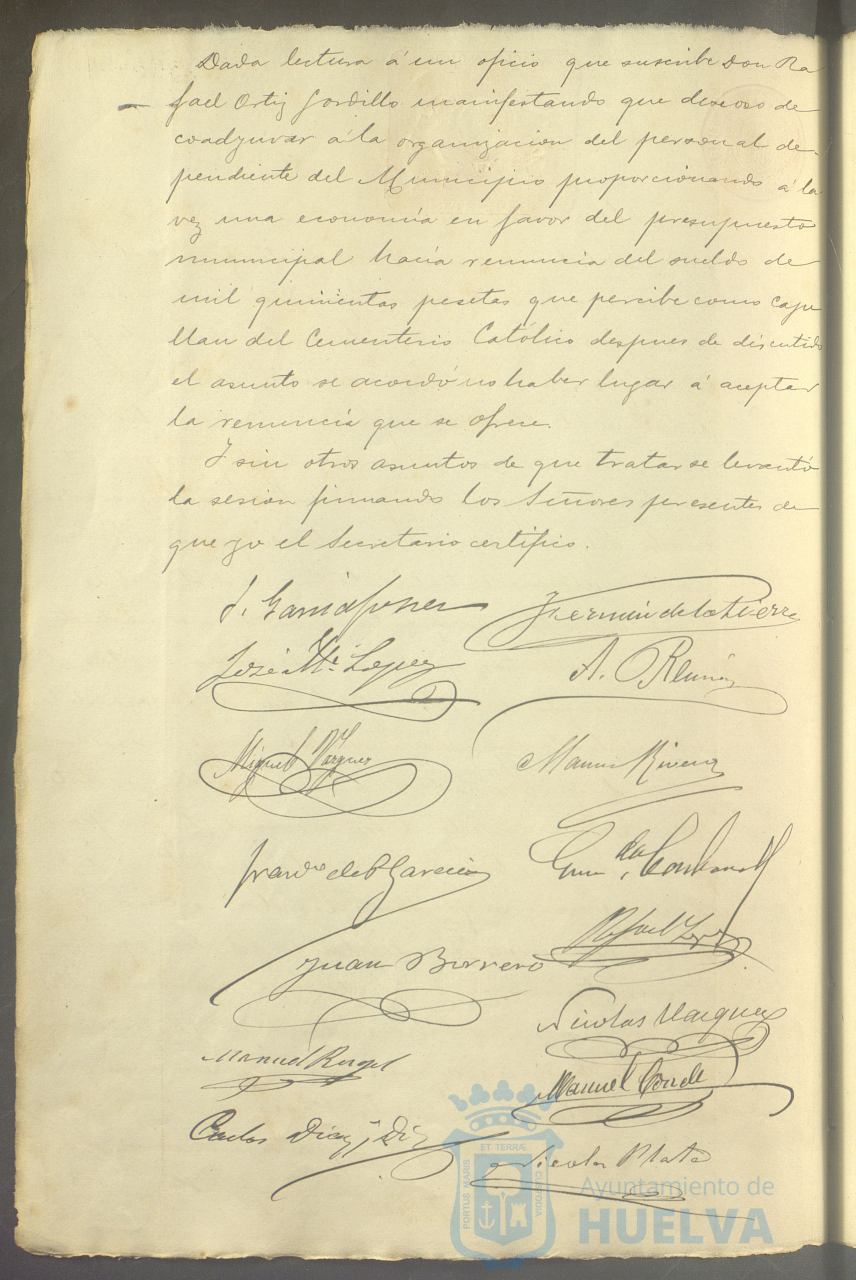 Dada lectura á un oficio que suscribe Don Ra
fael Ortiz Gordillo manifestando que deseoso de
coadyuvar á la organizacion del personal de-
pendiente del Municipio proporcionando á la
vez una economía en favor del presupuesto
municipal hacía renuncia del sueldo de
mil quinientas pesetas que percibe como cape
llan del Cementerio Católico despues de discutido
el asunto se acordó no haber lugar á aceptar
la renuncia que se ofrece.
Y sin otros asuntos de que tratar se levantó
la sesion firmando los Señores presentes de
que yo el Secretario certifico.
Fermin de la Sierra
José Mª Lopez
A.
Miguel Vázquez
Manuel Rivera
Franco de P García
Juan Borrero
Rafael López
Nicolas Vazquez
Manuel Rengel
Manuel Conde
Carlos Diaz y Diaz
Nicolas Plata
ET TERRÆ
PORTUS MARIS
CUSTODIA
Ayuntamiento de
HUELVA